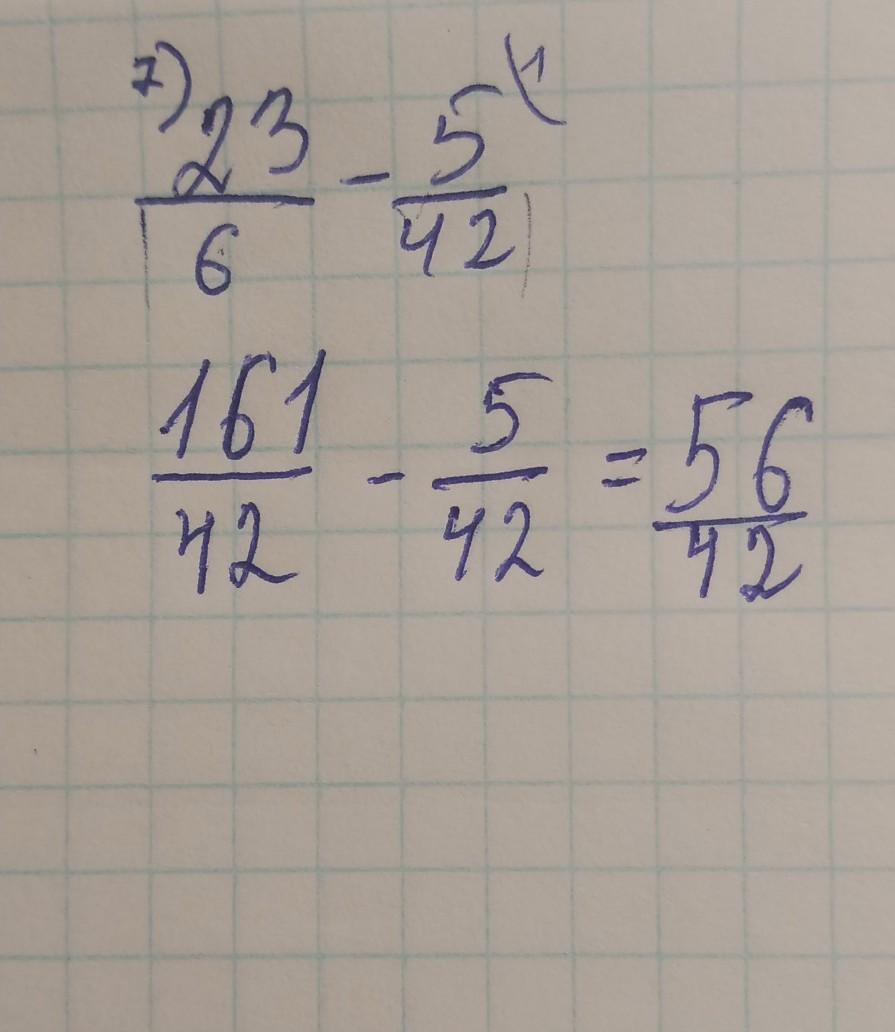 7) 23/6 - 5/42 (1
161/42 - 5/42 = 56/42